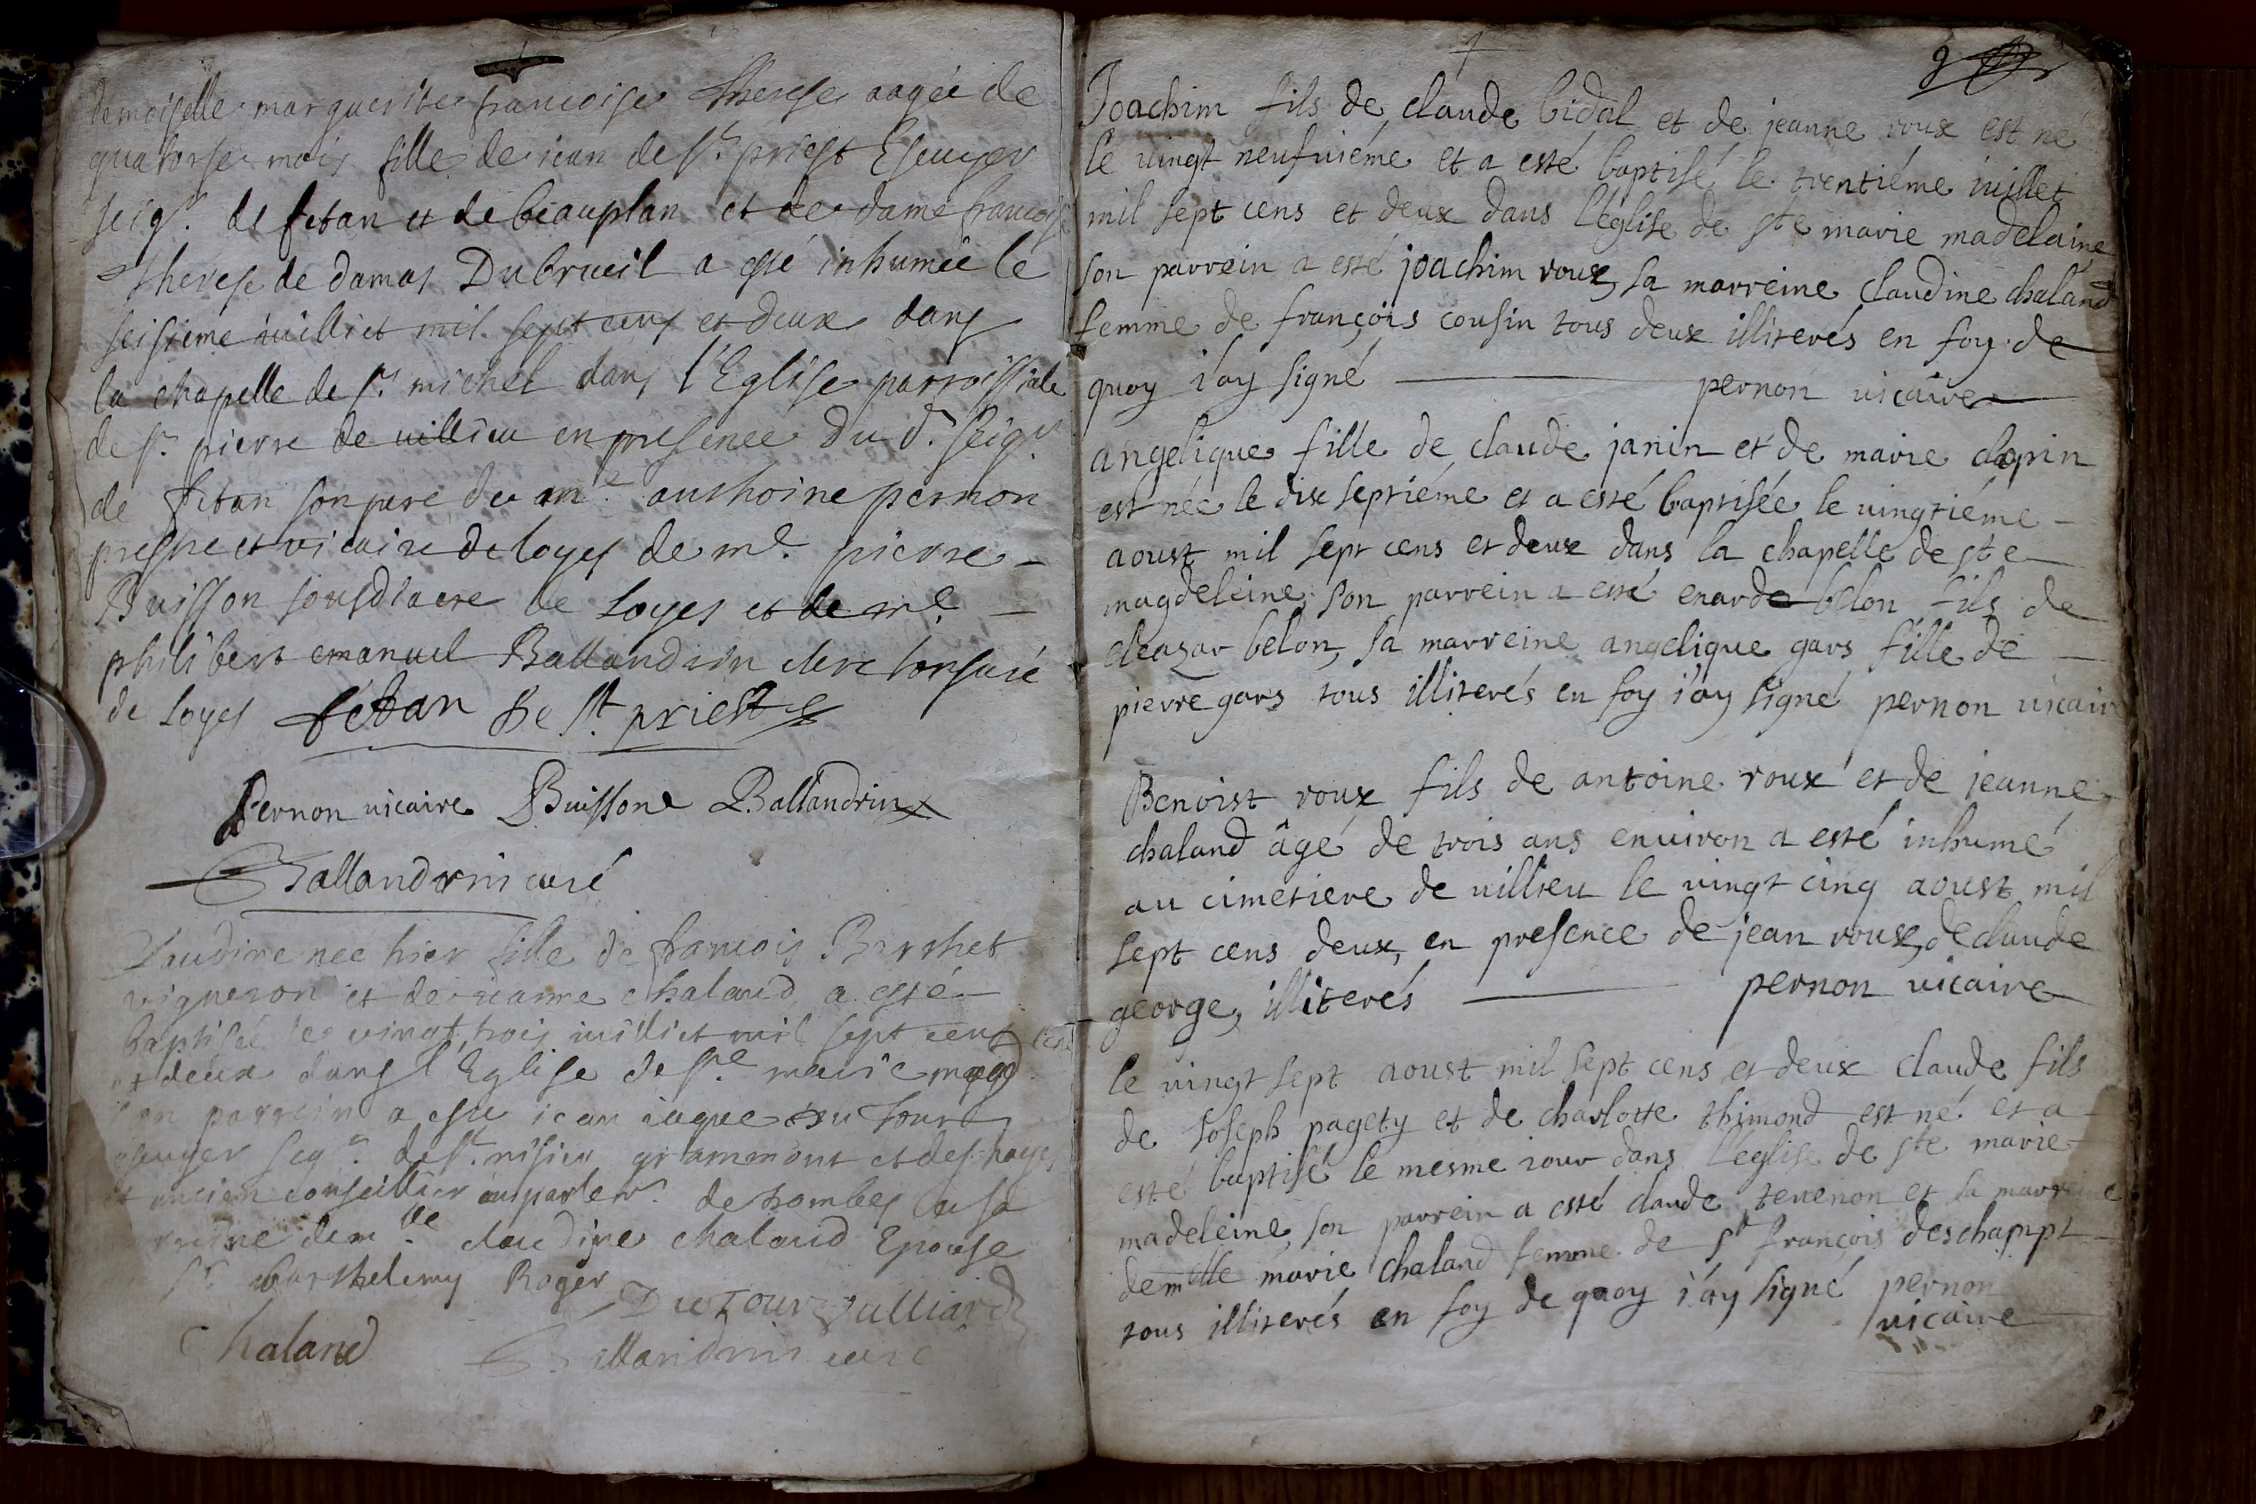 demoiselle marguerite francoise therese aagée de
quatorse mois fille de iean de st priest Escuyer
seigr. de fetan et de beauplan et de dame francoise
therese de damas Dubrueil a esté inhumée le
seisieme iuilliet mil sept cens et deux dans
la chapelle de st michel dans l'Eglise parroissiale
de st pierre de villieu en presence du d. seigr
de fetan son pere de me anthoine pernon
prestre et vicaire de loyes de me. pierre
Buisson sousdiacre de loyes et de me
philibert emanuel Ballandrin clerc tonsuré
de loyes fetan de st. priest
Pernon vicaire Buisson Ballandrin
Ballandrin curé
Claudine nee hier fille de francois Berthet
vigneron et de ieanne chaland a esté
baptisée le vingt trois iuilliet mil sept cent
et deux dans l'Eglise de ste marie magd
son parrein a esté iean iaque du tour
escuyer segr. de st. nisier grammont et des hayes
et ancien conseillier au parlemt. de dombes et sa
reine demlle claudine chaland Epouse
sr barthelemy Roger
Dutour Vulliard
Chaland Ballandrin curé
9
Joachim fils de claude bidal et de jeanne roux est né
le vingt neufvième et a esté baptisé le trentième iuillet
mil sept cens et deux dans l'église de ste marie madelaine
son parrein a esté joachim roux, sa marreine claudine chaland
femme de françois cousin tous deux illiterés en foy de
quoy i'ay signé pernon vicaire
angelique fille de claude janin et de marie clapin
est née le dix septième et a esté baptisée le vingtième
aoust mil sept cens et deux dans la chapelle de ste
magdeleine, son parrein a esté enarde belon fils de
eleazar belon, sa marreine angelique gars fille de
pierre gars tous illiterés en foy i'ay signé pernon vicaire
Benoist roux fils de antoine roux et de jeanne
chaland âgé de trois ans environ a esté inhumé
au cimetiere de villieu le vingt cinq aoust mil
sept cens deux, en presence de jean roux, de claude
george, illiterés pernon vicaire
le vingt sept aoust mil sept cens et deux claude fils
de Joseph pagety et de charlotte thimond est né et a
esté baptisé le mesme iour dans l'eglise de ste marie
madeleine, son parrein a esté claude tenenon et sa marreine
demlle marie chaland femme de sr françois deschampt
tous illiterés en foy de quoy i'ay signé pernon
vicaire